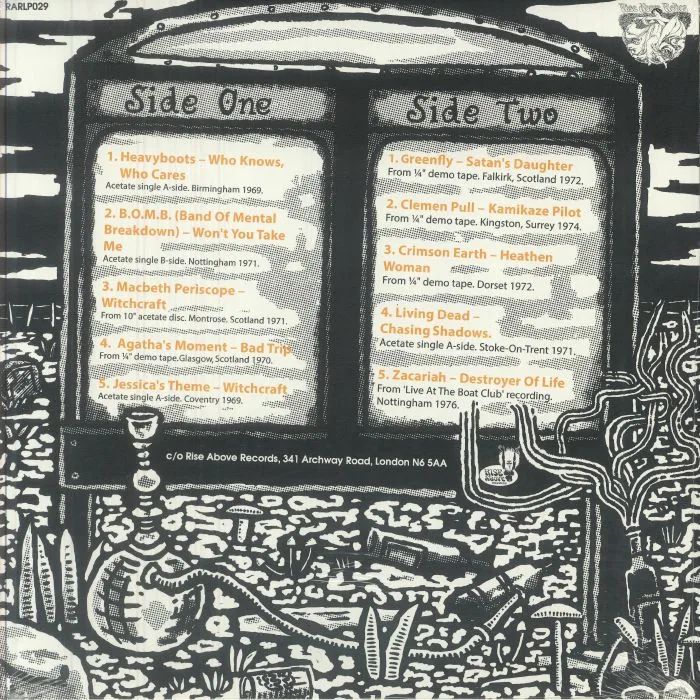 RARLP029
Rise Above Relics
Side One
1. Heavyboots – Who Knows,
Who Cares
Acetate single A-side. Birmingham 1969.
2. B.O.M.B. (Band Of Mental
Breakdown) – Won't You Take
Me
Acetate single B-side. Nottingham 1971.
3. Macbeth Periscope –
Witchcraft
From 10" acetate disc. Montrose. Scotland 1971.
4. Agatha's Moment – Bad Trip
From ¼" demo tape.Glasgow, Scotland 1970.
5. Jessica's Theme – Witchcraft
Acetate single A-side. Coventry 1969.
Side Two
1. Greenfly – Satan's Daughter
From ¼" demo tape. Falkirk, Scotland 1972.
2. Clemen Pull – Kamikaze Pilot
From ¼" demo tape. Kingston, Surrey 1974.
3. Crimson Earth – Heathen
Woman
From ¼" demo tape. Dorset 1972.
4. Living Dead –
Chasing Shadows.
Acetate single A-side. Stoke-On-Trent 1971.
5. Zacariah – Destroyer Of Life
From 'Live At The Boat Club' recording.
Nottingham 1976.
c/o Rise Above Records, 341 Archway Road, London N6 5AA
RISE
ABOVE